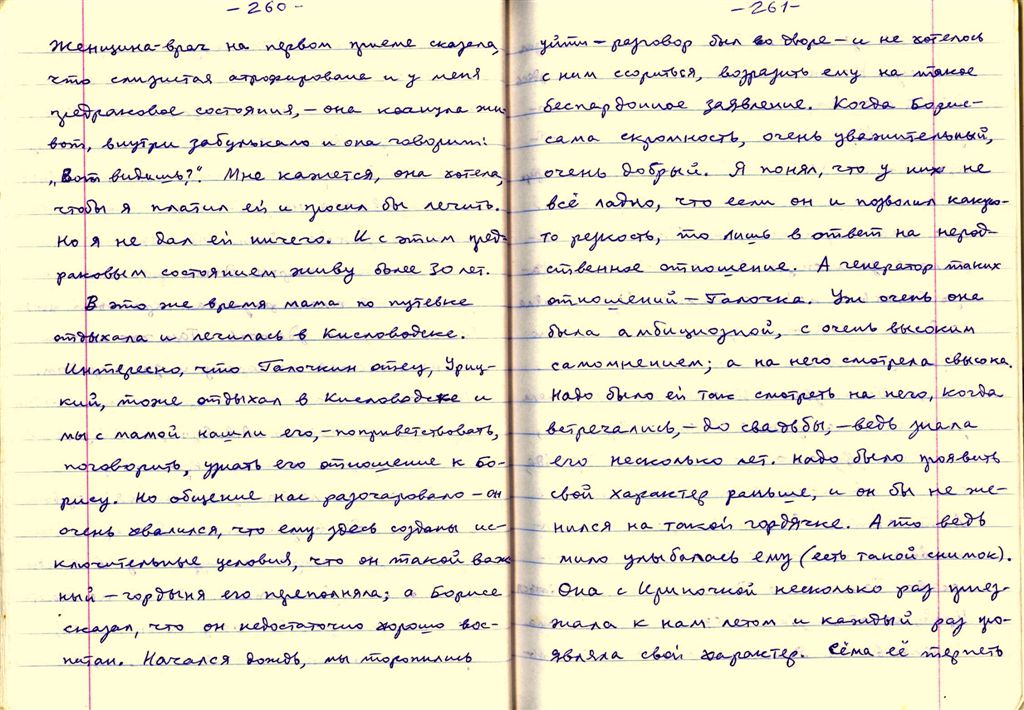 - 260 -
Женщина-врач на первом приеме сказала,
что слизистая атрофирована и у меня
предраковое состояния, - она коснула жи
вот, внутри забулькало и она говорит:
„Вот видишь?". Мне кажется, она хотела,
чтобы я платил ей и просил бы лечить.
Но я не дал ей ничего. И с этим пред-
раковым состоянием живу более 30 лет.
В это же время мама по путевке
отдыхала и лечилась в Кисловодске.
Интересно, что Галочкин отец, Уриц-
кий, тоже отдыхал в Кисловодске и
мы с мамой нашли его, - поприветствовать,
поговорить, узнать его отношение к Бо-
рису. Но общение нас разочаровало - он
очень хвалился, что ему здесь созданы ис-
ключительные условия, что он такой важ
ный - гордыня его переполняла; а Борисе
сказал, что он недостаточно хорошо вос-
питан. Начался дождь, мы торопились
- 261 -
уйти - разговор был во дворе - и не хотелось
с ним ссориться, возразить ему на такое
беспардонное заявление. Когда Борис -
сама скромность, очень уважительный,
очень добрый. Я понял, что у них не
всё ладно, что если он и позволил какую-
то резкость, то лишь в ответ на нерод-
ственное отношение. А генератор таких
отношений - Галочка. Уж очень она
была амбициозной, с очень высоким
самомнением; а на него смотрела свысока.
Надо было ей так смотреть на него, когда
встречались, - до свадьбы, - ведь знала
его несколько лет. Надо было проявить
свой характер раньше, и он бы не же-
нился на такой гордячке. А то ведь
мило улыбалась ему (есть такой снимок).
Она с Ириночкой несколько раз приез-
жала к нам летом и каждый раз про-
являла свой характер. Сёма её терпеть